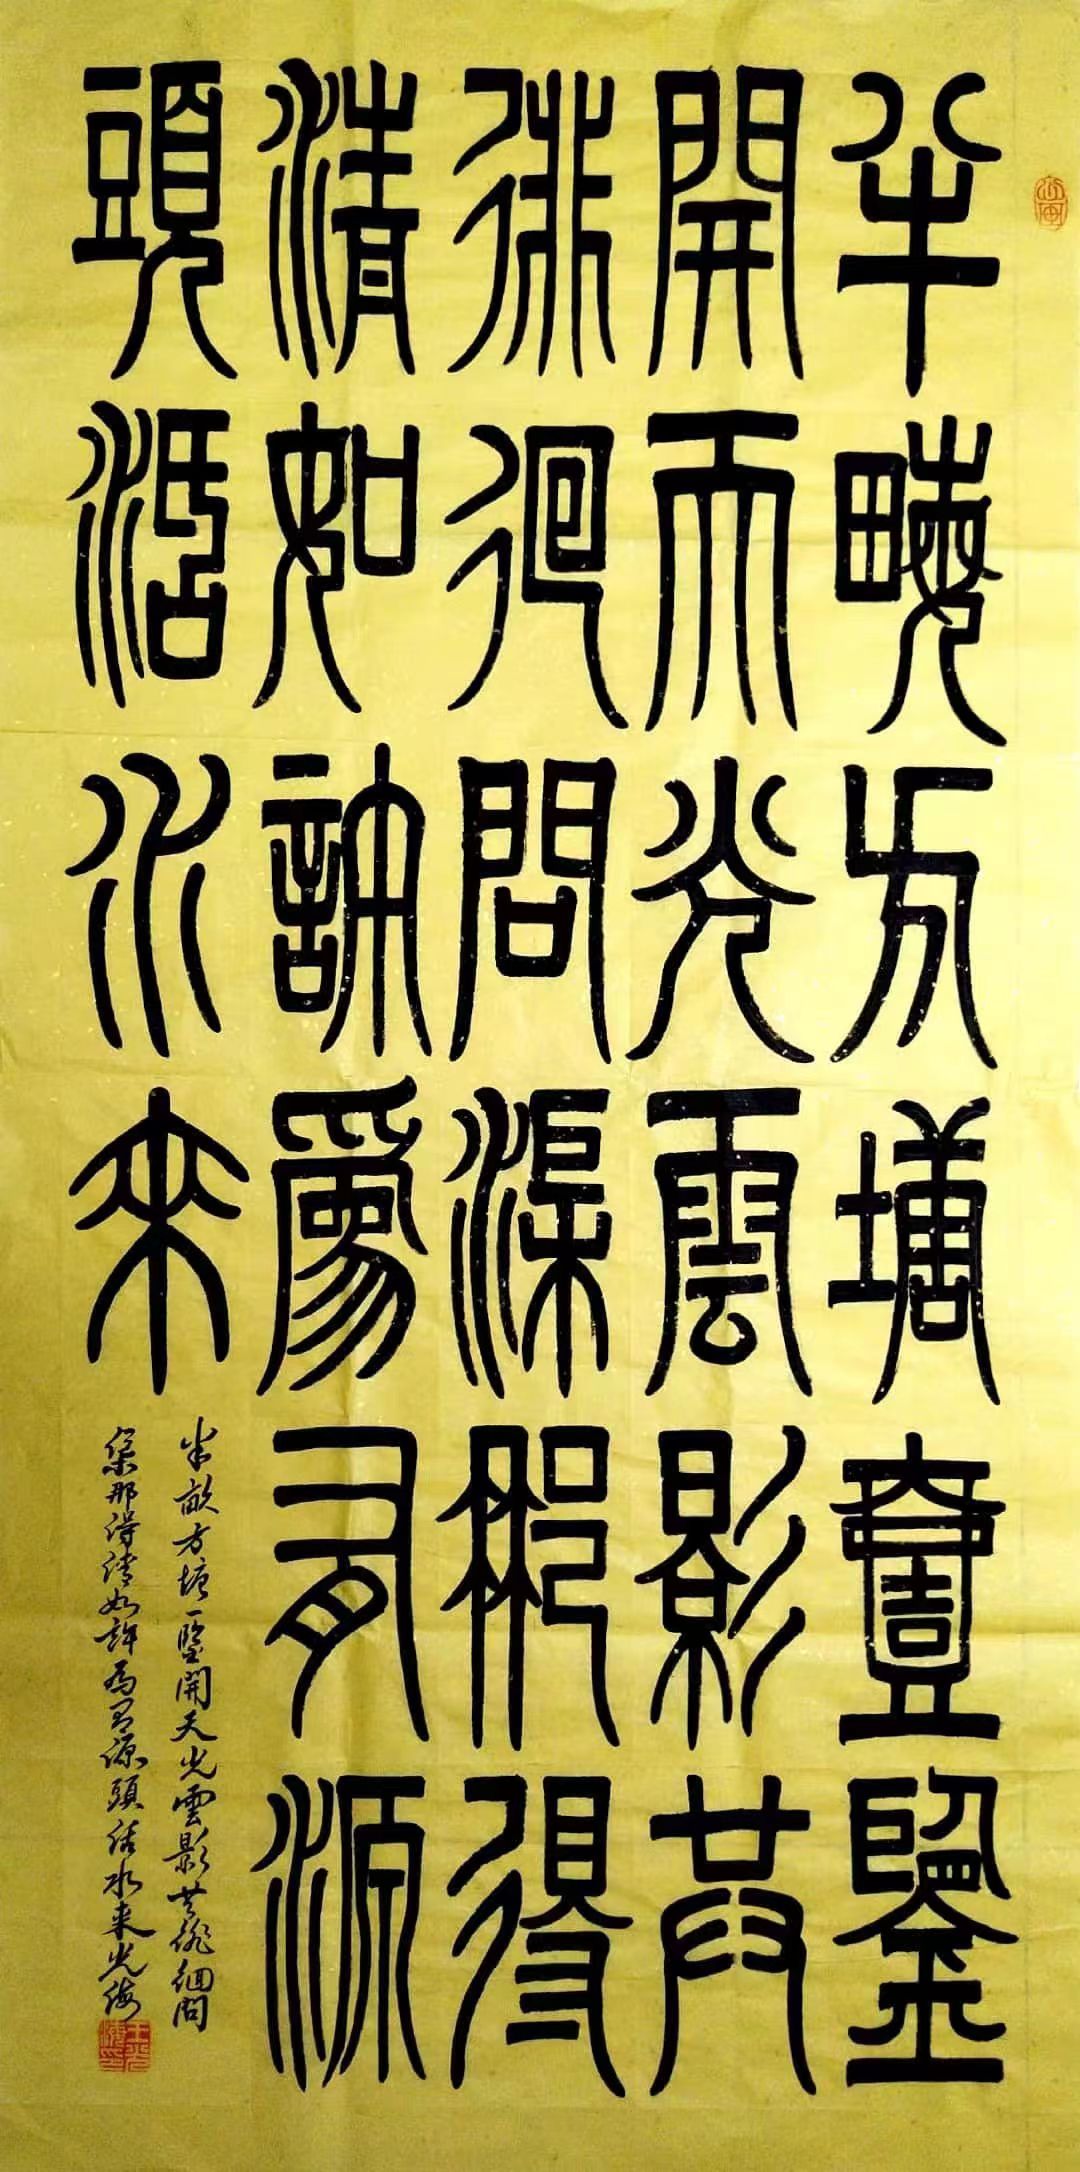 半畮方塘壹鑒
開天光雲影共
徘徊問渠那得
清如許爲有源
頭活水來
半畝方塘一鑒開天光雲影共徘徊問
渠那得清如許为有源頭活水来光海